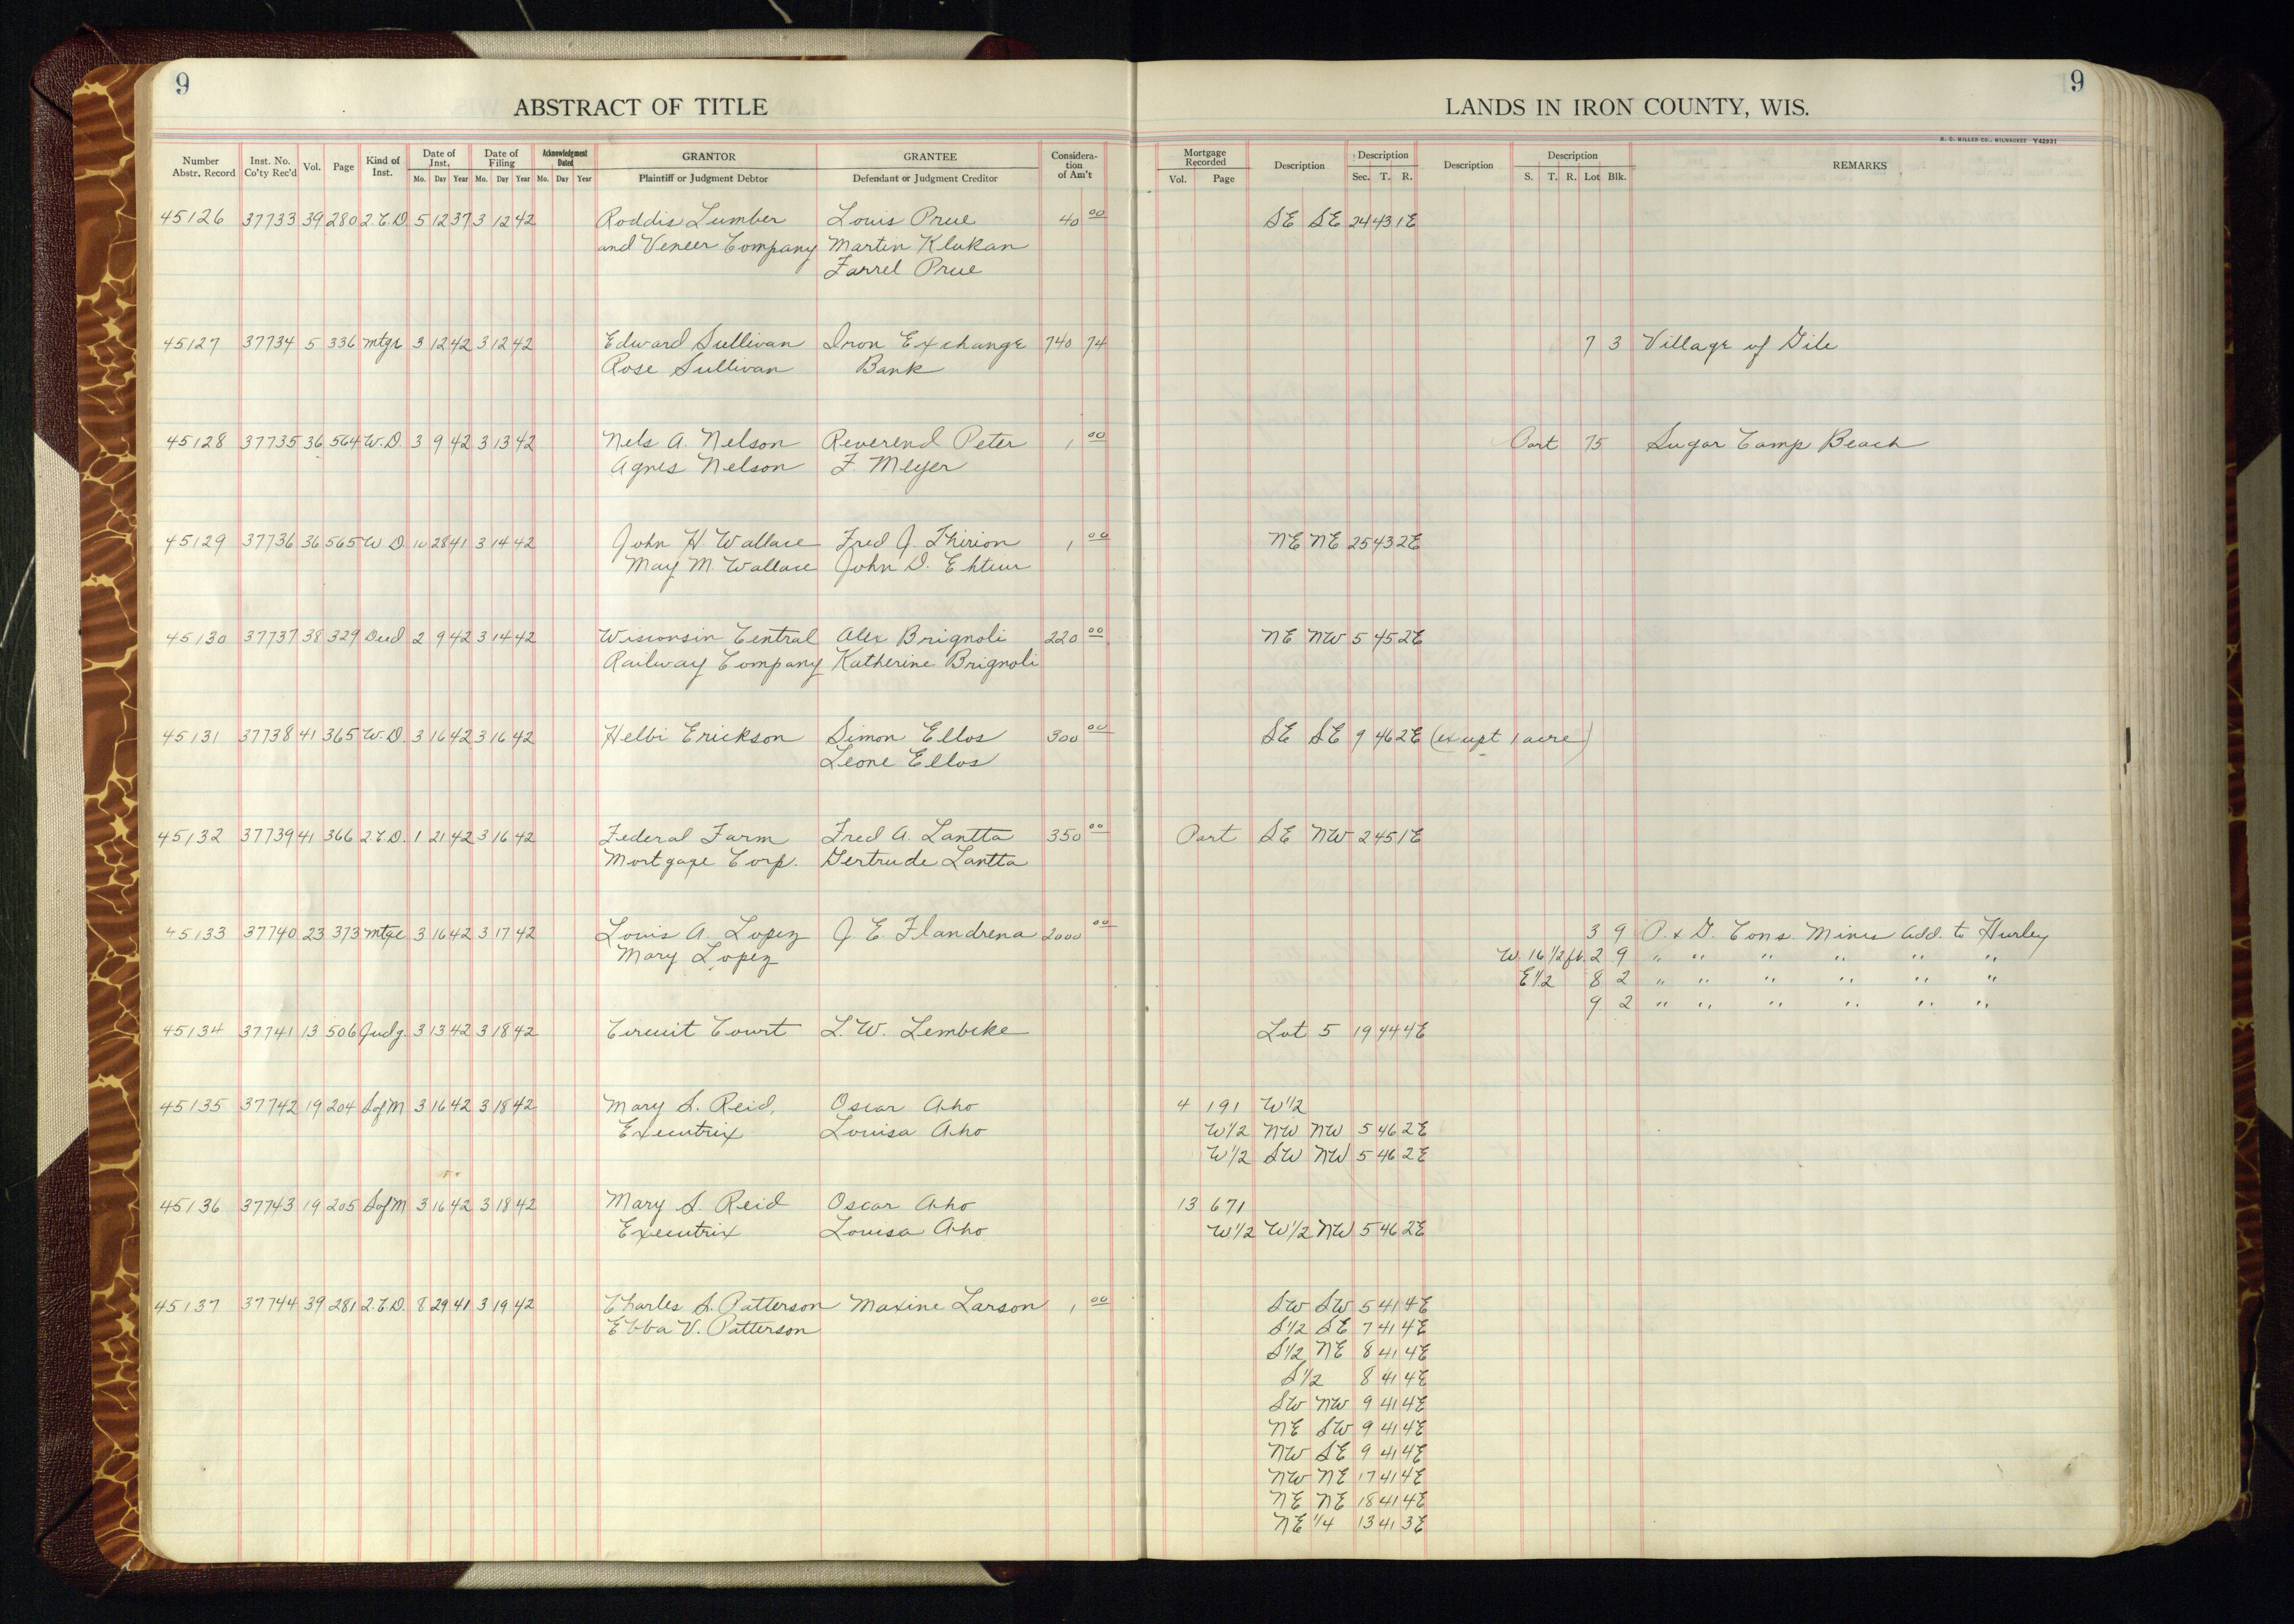 9
ABSTRACT OF TITLE
Number Abstr. Record Inst. No. Co'ty Rec'd Vol. Page Kind of Inst. Date of Inst. Mo. Day Year Date of Filing Mo. Day Year Acknowledgment Dated Mo. Day Year GRANTOR Plaintiff or Judgment Debtor GRANTEE Defendant or Judgment Creditor Consideration of Am't
9
LANDS IN IRON COUNTY, WIS.
H. C. MILLER CO., MILWAUKEE Y42931
Mortgage Recorded Vol. Page Description Description Sec. T. R. Description Description S. T. R. Lot Blk. REMARKS
45126 37733 39 280 2.C.D. 5 12 37 3 12 42 Roddis Lumber Louis Prue 40 00 SE SE 24 43 1E
and Veneer Company Martin Klukan
Farrel Prue
45127 37734 5 336 mtge 3 12 42 3 12 42 Edward Sullivan Iron Exchange 740 74 7 3 Village of Gile
Rose Sullivan Bank
45128 37735 36 564 W.D. 3 9 42 3 13 42 Nels A. Nelson Reverend Peter 1 00 Part 75 Sugar Camp Beach
Agnes Nelson F. Meyer
45129 37736 36 565 W D. 10 28 41 3 14 42 John H. Wallace Fred J. Thirion 1 00 NE NE 25 43 2E
May M. Wallace John D.
45130 37737 38 329 Deed 2 9 42 3 14 42 Wisconsin Central Alex Brignoli 220 00 NE NW 5 45 2E
Railway Company Katherine Brignoli
45131 37738 41 365 W.D. 3 16 42 3 16 42 Helbi Erickson Simon Ellos 300 00 SE SE 9 46 2E (except 1 acre)
Leone Ellos
45132 37739 41 366 2.C.D. 1 21 42 3 16 42 Federal Farm Fred A. Lantta 350 00 Part SE NW 2 45 1E
Mortgage Corp. Gertrude Lantta
45133 37740 23 373 mtge 3 16 42 3 17 42 Louis A. Lopez J. E. Flandrena 2000 00 3 9 P. & G. Cons. Mines Add. to Hurley
Mary Lopez W. 16 1/2 ft. 2 9 " " " " " "
E 1/2 8 2 " " " " " "
9 2 " " " " " "
45134 37741 13 506 Judg. 3 13 42 3 18 42 Circuit Court L. W. Lembcke Lot 5 19 44 4E
45135 37742 19 204 S of M 3 16 42 3 18 42 Mary S. Reid, Oscar Aho 4 191 W 1/2
Executrix Louisa Aho W 1/2 NW NW 5 46 2E
W 1/2 SW NW 5 46 2E
45136 37743 19 205 S of M 3 16 42 3 18 42 Mary S. Reid Oscar Aho 13 671
Executrix Louisa Aho W 1/2 W 1/2 NW 5 46 2E
45137 37744 39 281 2.C.D. 8 29 41 3 19 42 Charles S. Patterson Maxine Larson 1 00 SW SW 5 41 4E
Ebba V. Patterson S 1/2 SE 7 41 4E
S 1/2 NE 8 41 4E
S 1/2 8 41 4E
SW NW 9 41 4E
NE SW 9 41 4E
NW SE 9 41 4E
NW NE 17 41 4E
NE NE 18 41 4E
NE 1/4 13 41 3E